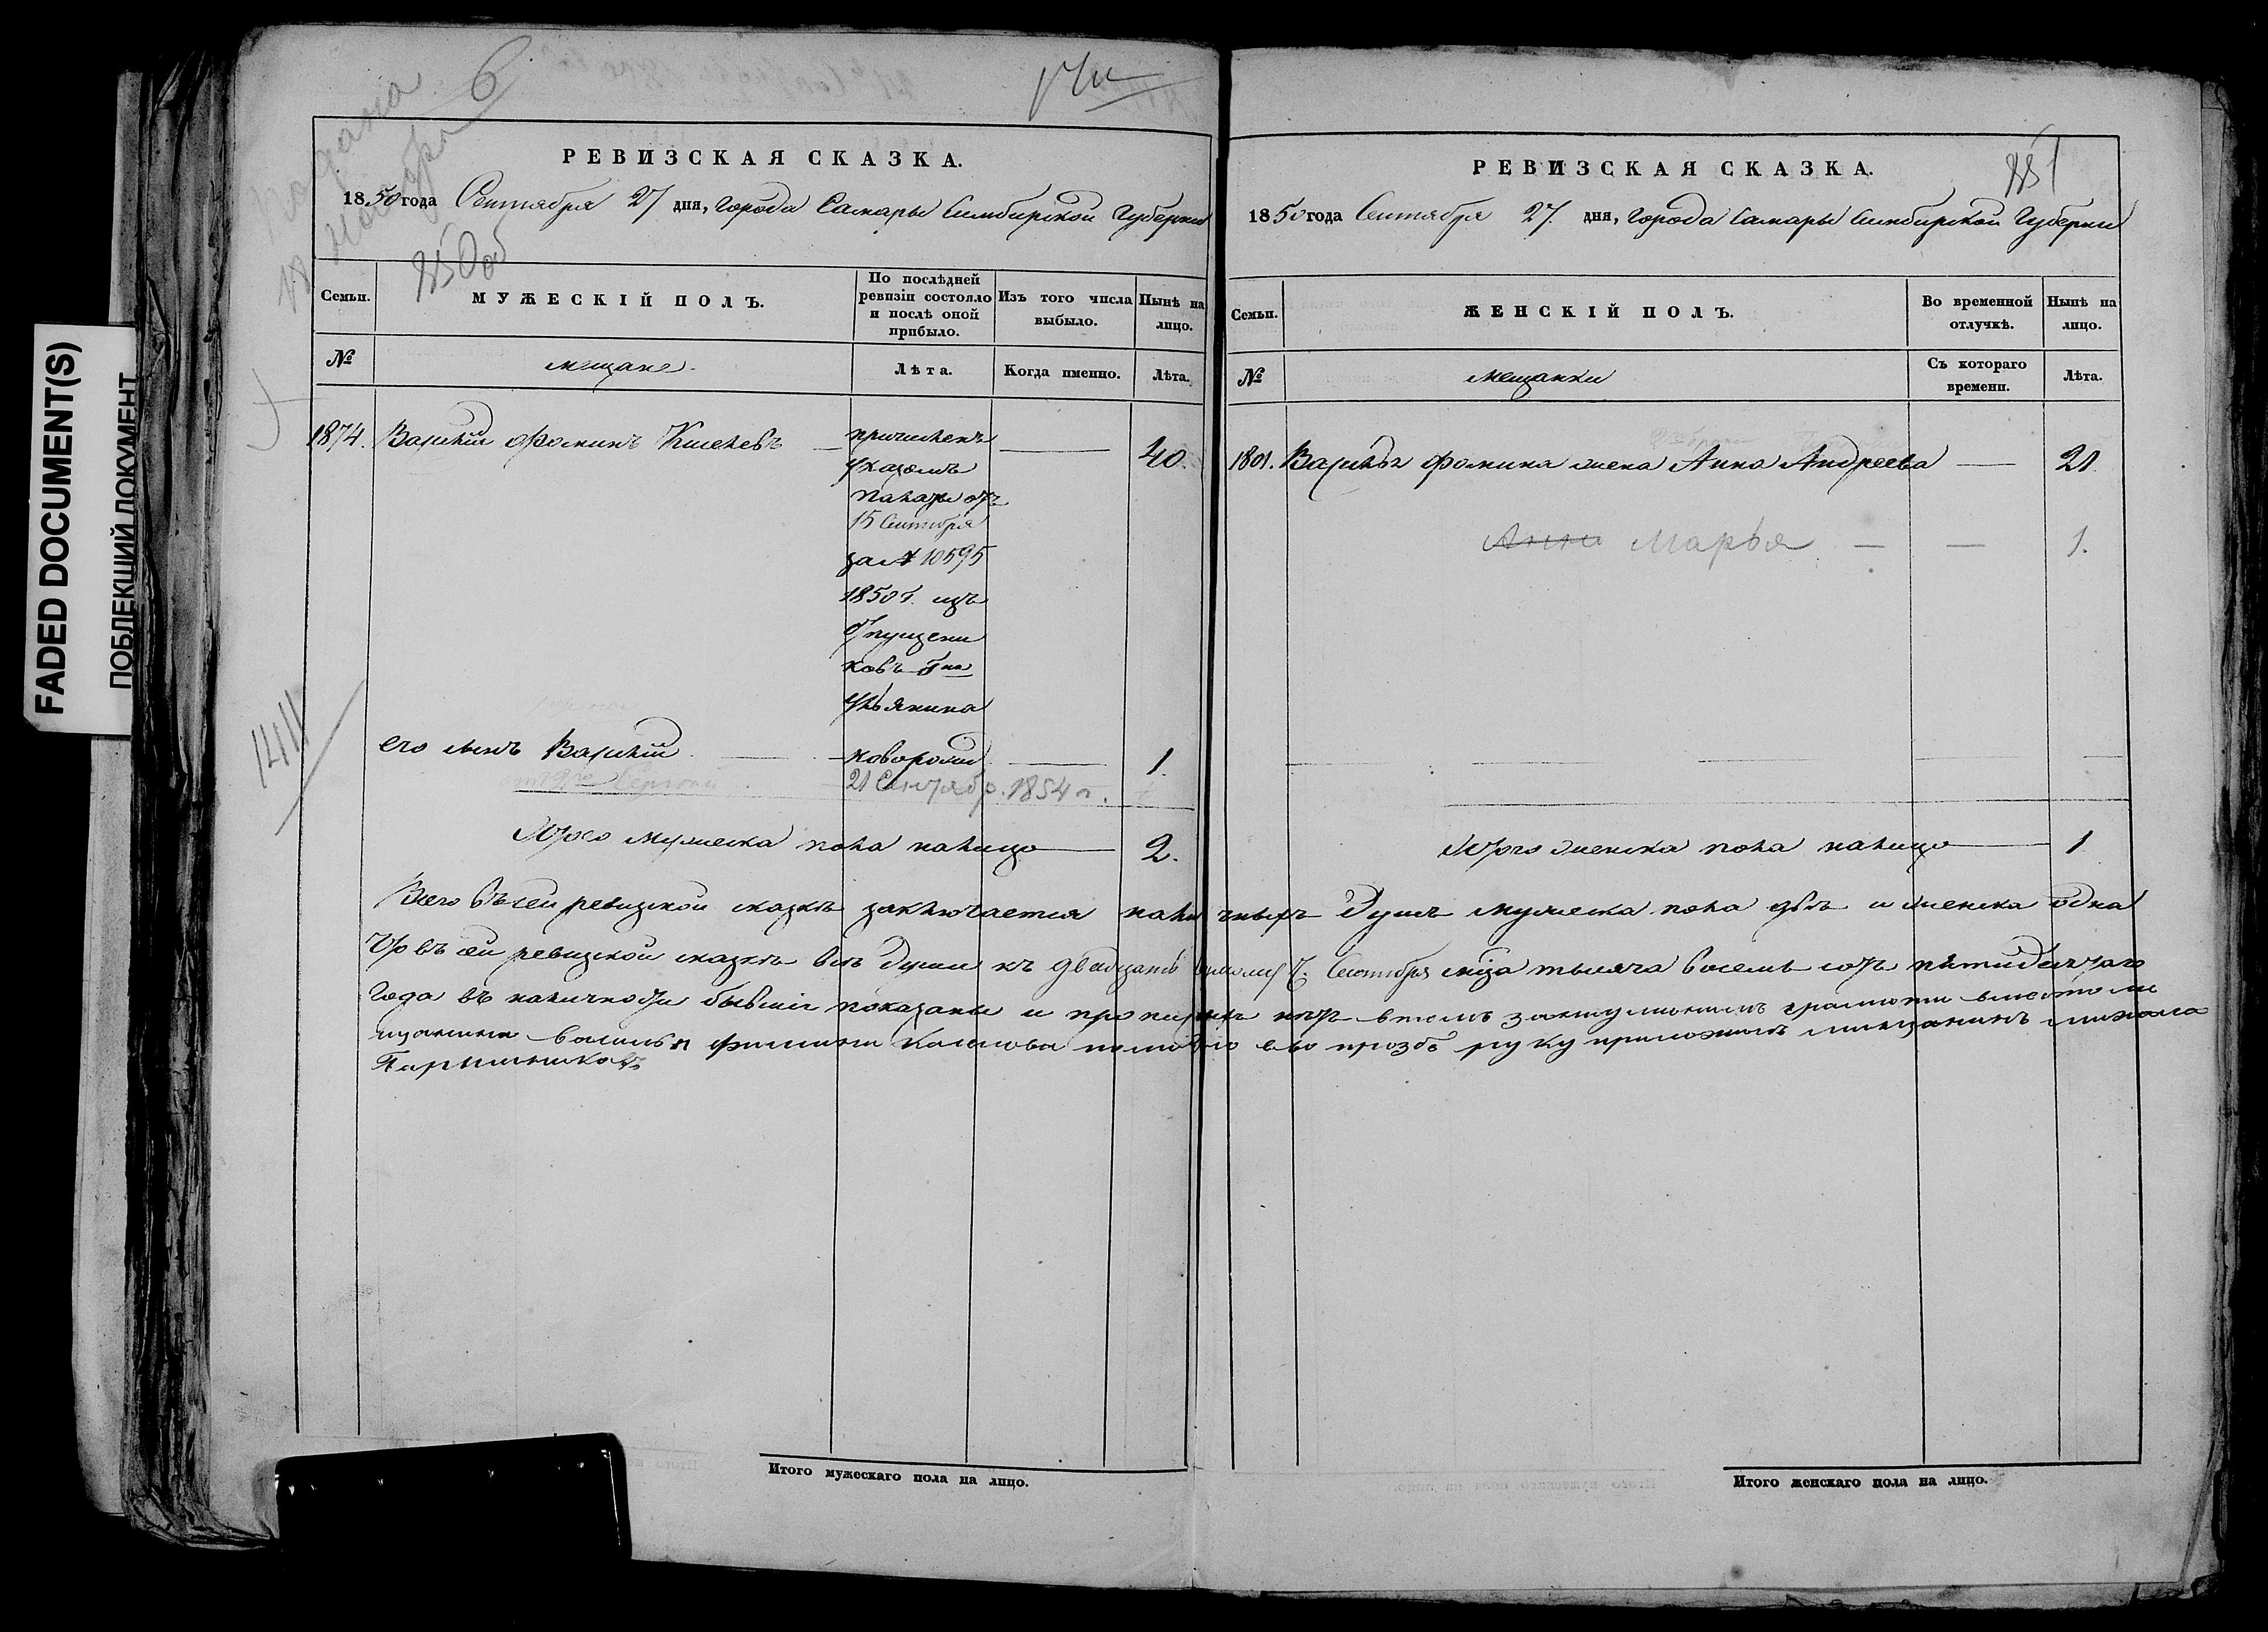 FADED DOCUMENT(S)
ПОБЛЕКШИЙ ДОКУМЕНТ
подана
18 Ноября
6
850 об
1411
РЕВИЗСКАЯ СКАЗКА.
1850 года Сентября 27 дня, Города Самары Симбирской Губернии
Семьи.
МУЖЕСКІЙ ПОЛЪ.
По послѣдней ревизіи состояло и послѣ оной прибыло.
Изъ того числа выбыло.
Нынѣ на лицо.
№
мещане.
Лѣта.
Когда именно.
Лѣта.
1874. Василий Фоминъ — причисленъ — 40.
указомъ
палаты отъ
15 Сентября
за № 10595
1850 г. изъ
отпущени
ковъ Гна
его сынъ Василий — новорожд — 1.
21 Сентябр. 1854 г.
Итого мужеска пола налицо — 2.
РЕВИЗСКАЯ СКАЗКА.
851
1850 года Сентября 27. дня, Города Самары Симбирской Губернии
Семьи.
ЖЕНСКІЙ ПОЛЪ.
Во временной отлучкѣ.
Нынѣ на лицо.
№
Мещанки
Съ котораго времени.
Лѣта.
1801. Василья Фомина жена Анна Андреева — 21
Анна Марья — — 1.
Итого женска пола налицо — 1
Всего въ сей ревизской сказкѣ заключается наличныхъ Душъ мужеска пола двѣ и женска одна
Что въ сей ревизской сказкѣ всѣ Души къ двадцать седьмому ч. Сентября мца тысяча восемь сотъ пятидесятаго
Года въ наличности бывшіе показаны и прописныхъ нетъ в темъ грамоти вместо ме
щанина василья фомина по его прозбѣ руку приложилъ мищанинъ
Итого мужескаго пола на лицо.
Итого женскаго пола на лицо.